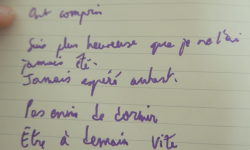 Ont compris
Suis plus heureuse que je ne l'ai
jamais été.
Jamais espéré autant.
Pas envie de dormir
Être à demain vite